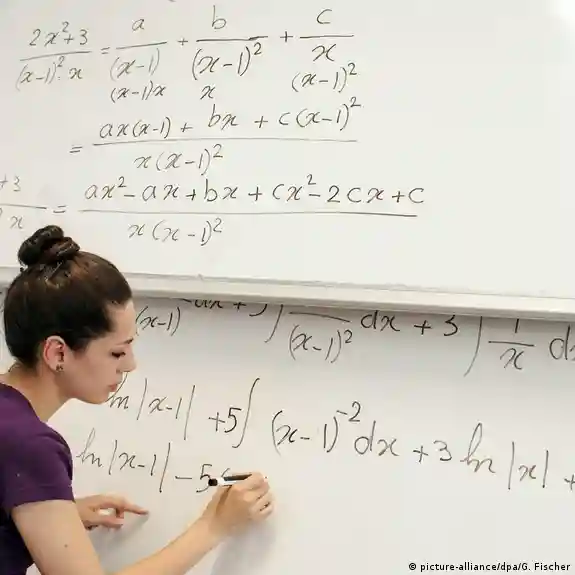 2x²+3/(x-1)²·x = a/(x-1) + b/(x-1)² + c/x
(x-1)x x (x-1)²
= ax(x-1) + bx + c(x-1)²/x(x-1)²
+3/x = ax²-ax+bx+cx²-2cx+c/x(x-1)²
(x-1) dx + 5∫ /(x-1)² dx + 3∫1/x d
ln|x-1| +5∫(x-1)⁻²dx +3 ln|x| +
ln|x-1| -5
© picture-alliance/dpa/G. Fischer